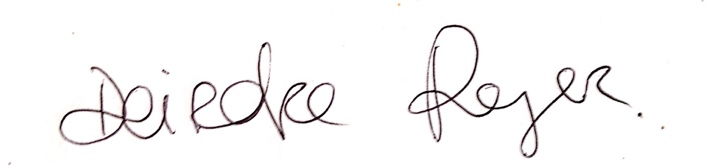 Deirdre Reyer.